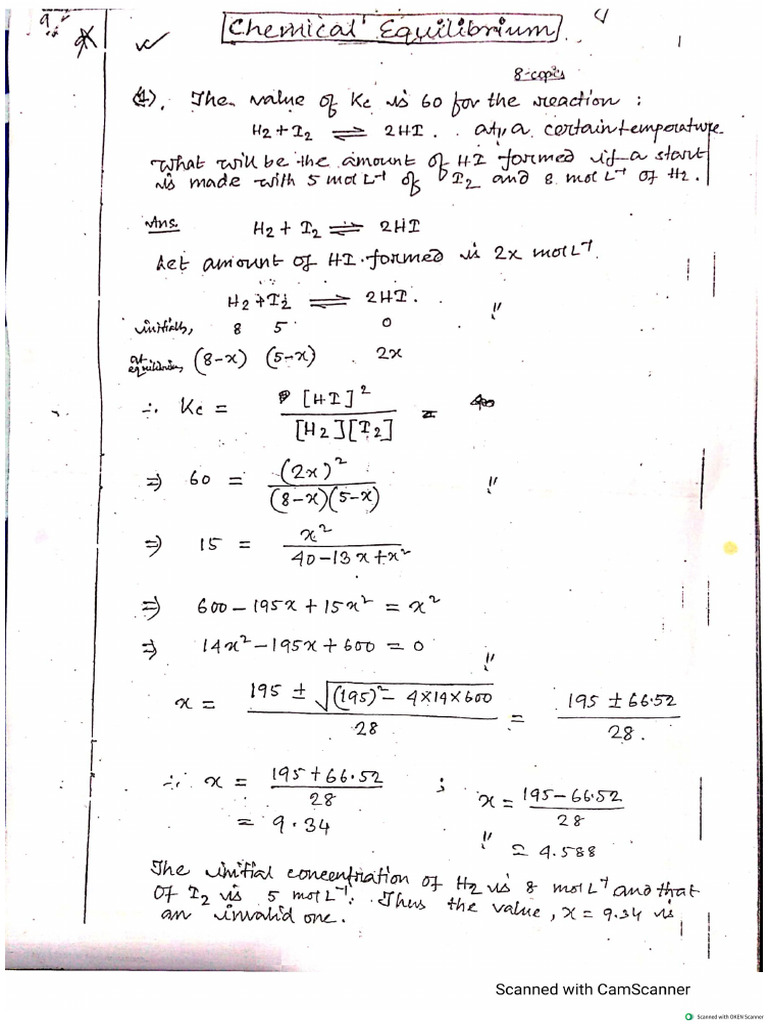 Chemical Equilibrium
1
8-copies
Q1). The value of Kc is 60 for the reaction :
H2 + I2 ⇌ 2HI . at a certain temperature.
What will be the amount of HI formed if a start
is made with 5 mol L⁻¹ of I2 and 8 mol L⁻¹ of H2.
Ans. H2 + I2 ⇌ 2HI
Let amount of HI formed is 2x mol L⁻¹
H2 + I2 ⇌ 2HI.
initially, 8 5 0
at equilibrium, (8-x) (5-x) 2x
∴ Kc = [HI]² / [H2][I2] =
⇒ 60 = (2x)² / (8-x)(5-x)
⇒ 15 = x² / 40-13x+x²
⇒ 600-195x+15x² = x²
⇒ 14x²-195x+600 = 0
x = 195 ± √(195)²-4×14×600 / 28 = 195 ± 66.52 / 28.
∴ x = 195+66.52 / 28 ; x = 195-66.52 / 28
= 9.34 = 4.588
The initial concentration of H2 is 8 mol L⁻¹ and that
of I2 is 5 mol L⁻¹. Thus the value, x = 9.34 is
an invalid one.
Scanned with CamScanner
Scanned with OKEN Scanner